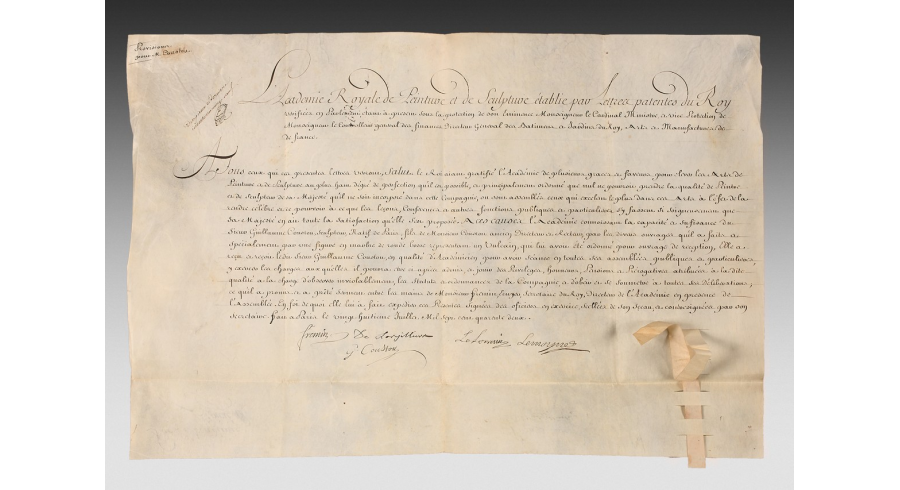 Provisions
pour M. Coustou
L'Académie Royale de Peinture et de Sculpture établie par Lettres patentes du Roy
vérifiées en Parlement, étant à présent sous la protection de son Eminence Monseigneur le Cardinal Ministre, & vice Protection de
Monseigneur le Controlleur general des finances Directeur General des Bastimens & Jardins du Roy, Arts & Manufactures de
de france.
A Tous ceux qui ces presentes Lettres verront, Salut. Le Roy ayant gratifié l'Académie de plusieurs graces & faveurs, pour élever les Arts de
Peinture & de Sculpture au plus haut degré de perfection qu'il est possible, & principalement ordonné que nul ne pourroit prendre la qualité de Peintre
& de Sculpteur de sa Majesté qu'il ne soit incorporé dans cette Compagnie, où sont assemblés ceux qui excelent le plus dans ces Arts, à l'effet de la
rendre célébre & ce pouvoir à ce que les leçons, Conférences & autres fonctions publiques & particulieres s'y fassent si soigneusement que
sa Majesté en ait toute la satisfaction qu'elle s'est proposée. A ces causes, l'Académie connoissant la capacité & suffisance du
Sieur Guillaume Coustou, Sculpteur, Natif de Paris, fils de Monsieur Coustou ancien Directeur & Recteur, par les divers ouvrages qu'il a faits, &
spécialement par une figure en marbre de ronde bosse représentant un Vulcain, qui luy avoit été ordonné pour ouvrage de réception, Elle a
reçu & reçoit le dit Sieur Guillaume Coustou, en qualité d'Académicien pour avoir séance en toutes ses assemblées publiques & particulieres,
y exercer les charges auxquelles il pourra être cy après admis, & jouir des Privileges, honneurs, Pensions & Prérogatives attribuées à la dite
qualité à la charge d'observer inviolablement les Statuts & ordonnances de la Compagnie & d'obéir & se soumettre à toutes ses délibérations,
ce qu'il a promis & a prêté serment entre les mains de Monsieur frémin, Ecuyer, Secretaire du Roy, Directeur de l'Académie en presence de
l'Assemblée. En foi de quoi elle lui a fait expedier ces Provisions signées des officiers en exercice, scellées de son Sceau, & contresignées par son
Secretaire. fait à Paris le vingt huitieme Juillet Mil sept cens quarante deux.
fremin De Largilliere Le Lorrain Lemoyne
G. Coustou